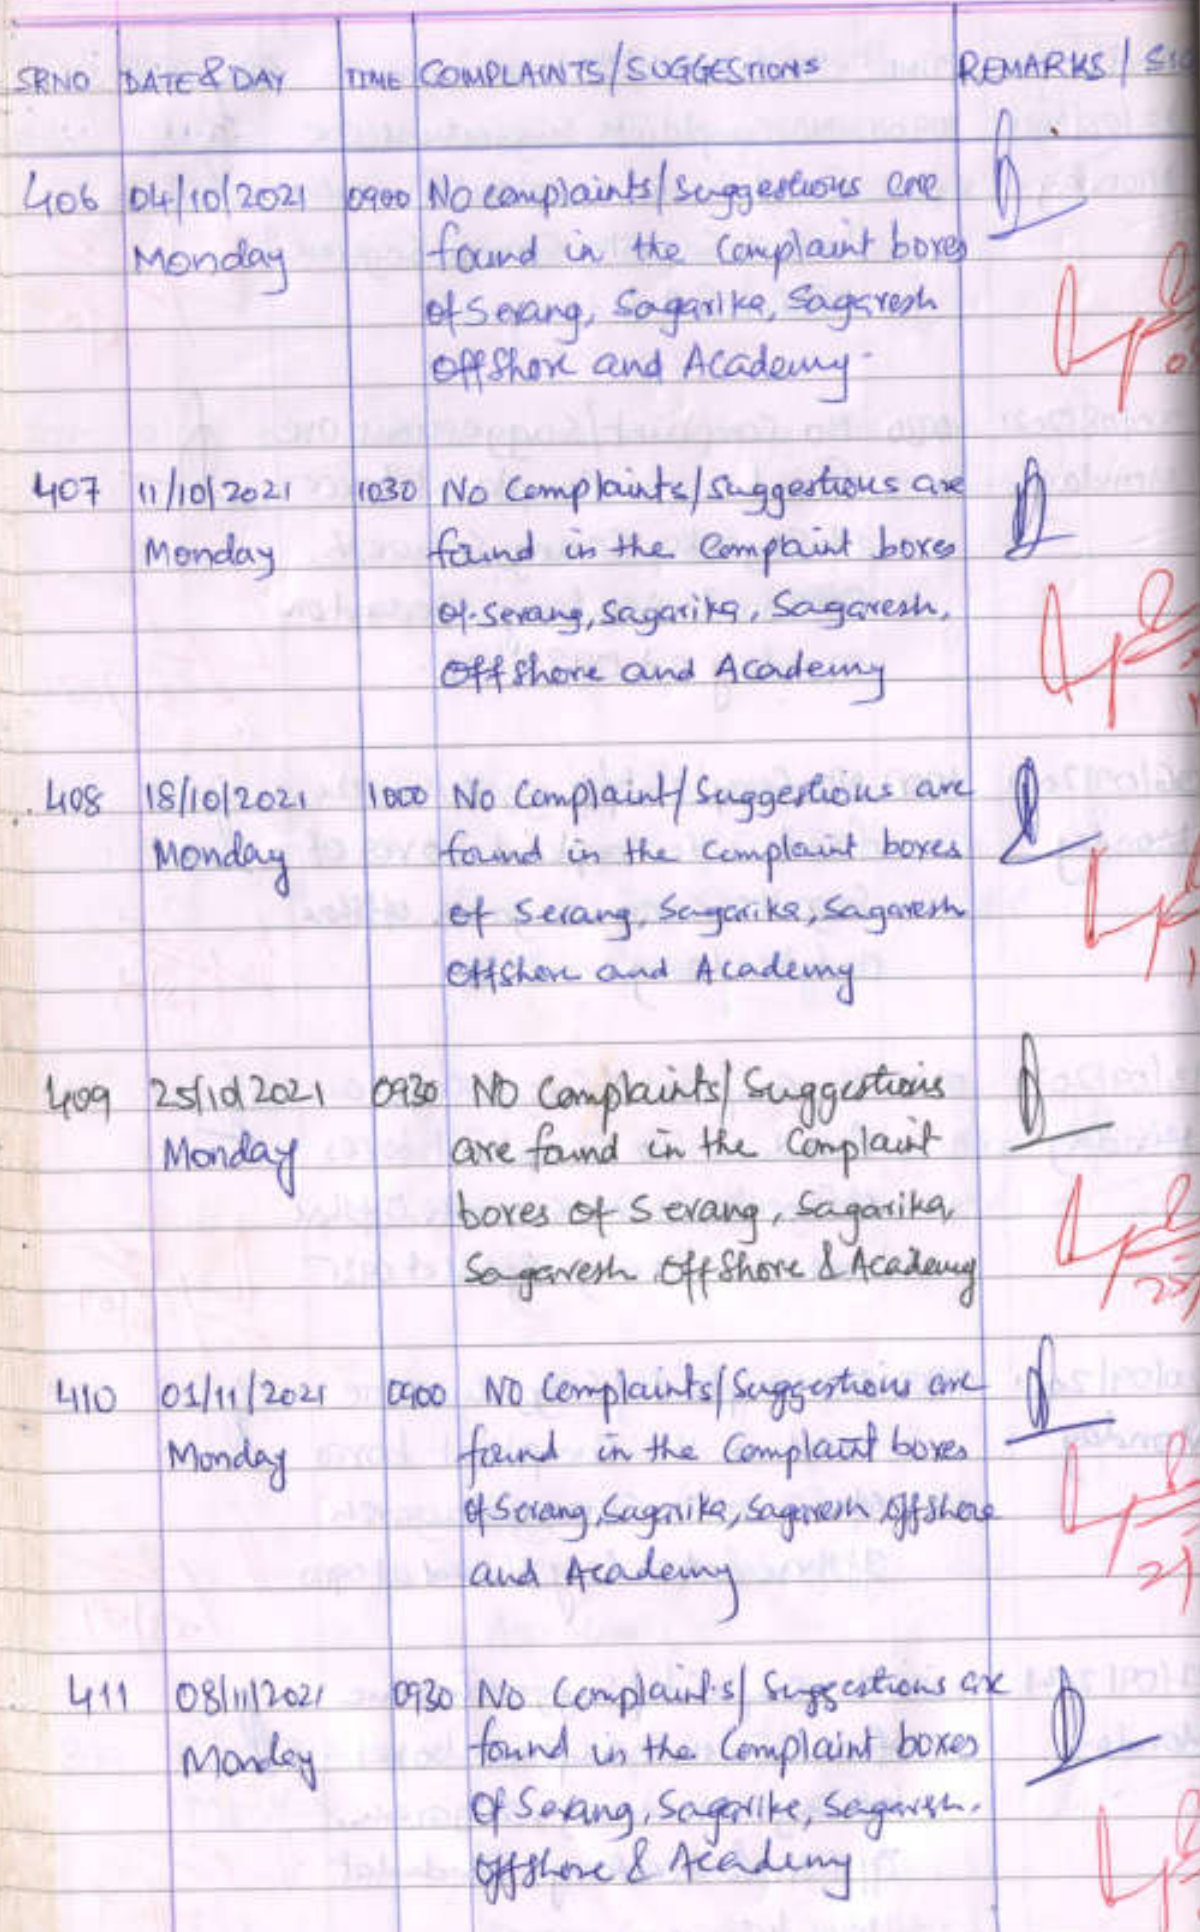 SRNO DATE & DAY TIME COMPLAINTS/SUGGESTIONS REMARKS /
406 04/10/2021 0900 No complaints/suggestions are
Monday found in the complaint boxes
of Serang, Sagarika, Sagaresh
Offshore and Academy.
407 11/10/2021 1030 No Complaints/suggestions are
Monday found in the complaint boxes
of Serang, Sagarika, Sagaresh,
Offshore and Academy
408 18/10/2021 1000 No Complaint/Suggestions are
Monday found in the complaint boxes
of Serang, Sagarika, Sagaresh
Offshore and Academy
409 25/10/2021 0930 NO Complaints/Suggestions
Monday are found in the Complaint
boxes of Serang, Sagarika,
Sagaresh Offshore & Academy
410 01/11/2021 0900 NO Complaints/Suggestions are
Monday found in the Complaint boxes
of Serang, Sagarika, Sagaresh, Offshore
and Academy
411 08/11/2021 0930 No Complaints/Suggestions are
Monday found in the Complaint boxes
Of Serang, Sagarika, Sagaresh.
Offshore & Academy